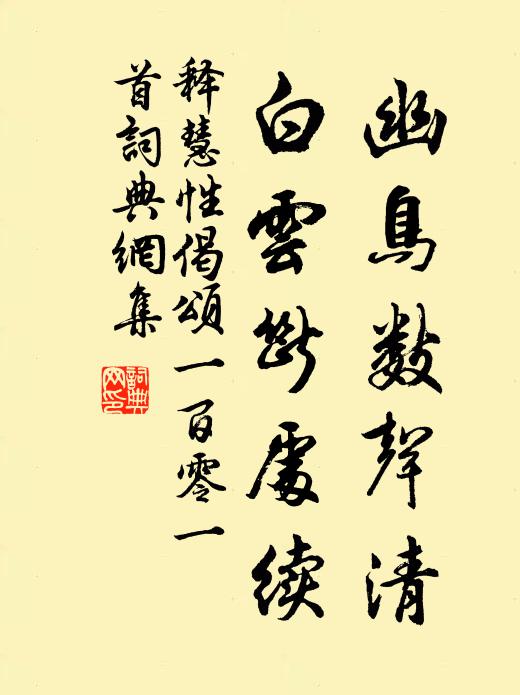 幽鳥数聲清
白雲斷處续
释慧性偈頌一百零一
首詞典網集
詞典
网印